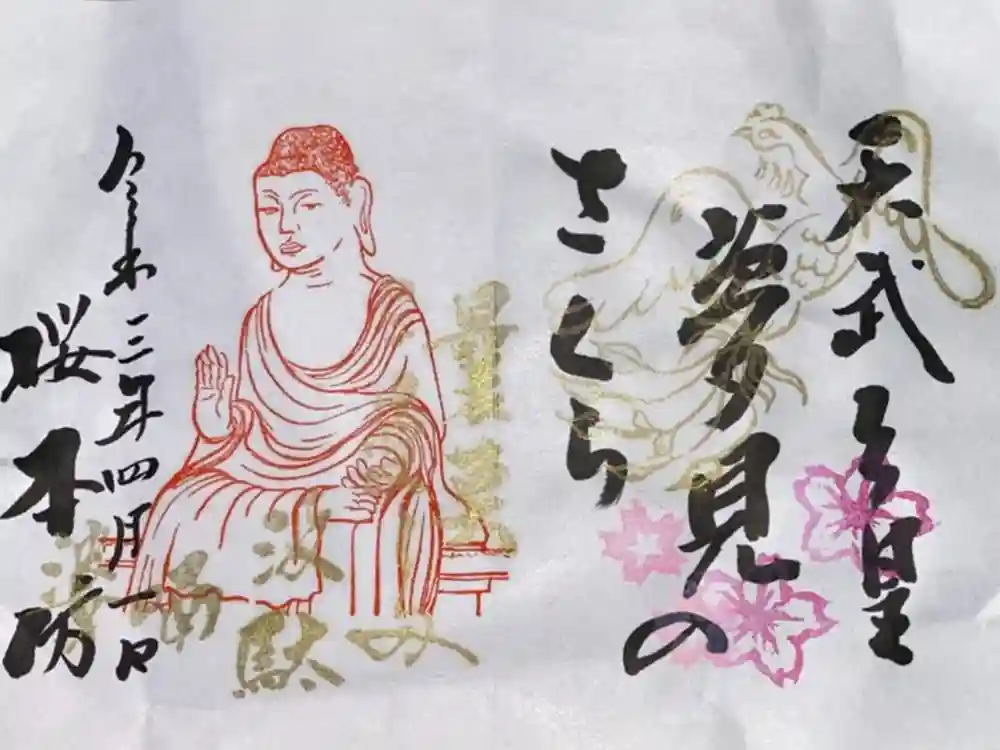 天武天皇
夢見の
さくら
令和三年四月一日
桜本坊